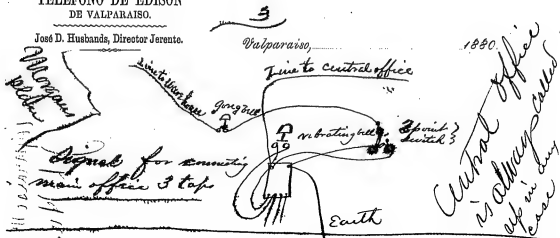 3
TELÉFONO DE EDISON
DE VALPARAISO.
José D. Husbands, Director Jerente.
Valparaiso, 1880.
Morgans
plan
Line to central office
Line to
gong bell
vibrating bell
3 point
switch
Signal for connecting
main office 3 taps
Earth
Central office
is always called
up in any
case